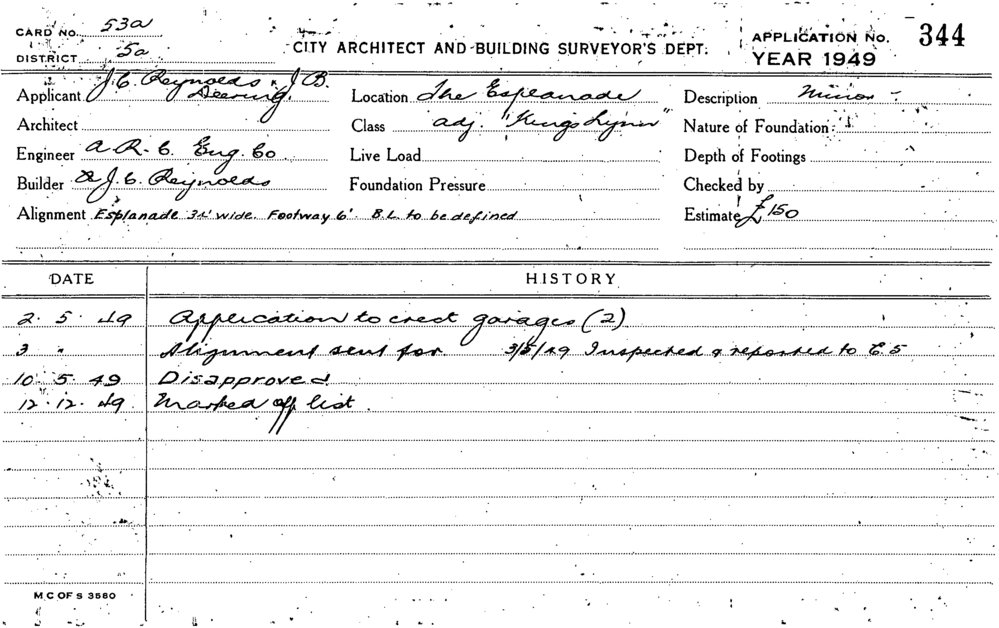 CARD NO. 53a
DISTRICT 5a
CITY ARCHITECT AND BUILDING SURVEYOR'S DEPT.
APPLICATION NO. 344
YEAR 1949
Applicant J. C. Reynolds, J B. Deering.
Architect
Engineer A. R. C. Eng. Co
Builder J. C. Reynolds
Alignment Esplanade wide. Footway 6' B.L. to be defined
Location The Esplanade
Class adj. "Kings Lynn"
Live Load
Foundation Pressure
Description Minor -
Nature of Foundation
Depth of Footings
Checked by
Estimate £150
DATE HISTORY
2. 5. 49 Application to erect garages (2)
3 " Alignment sent for 3/5/49 Inspected & reported to C.S
10. 5. 49 Disapproved
12. 12. 49 Marked off list.
M C OF S 3560